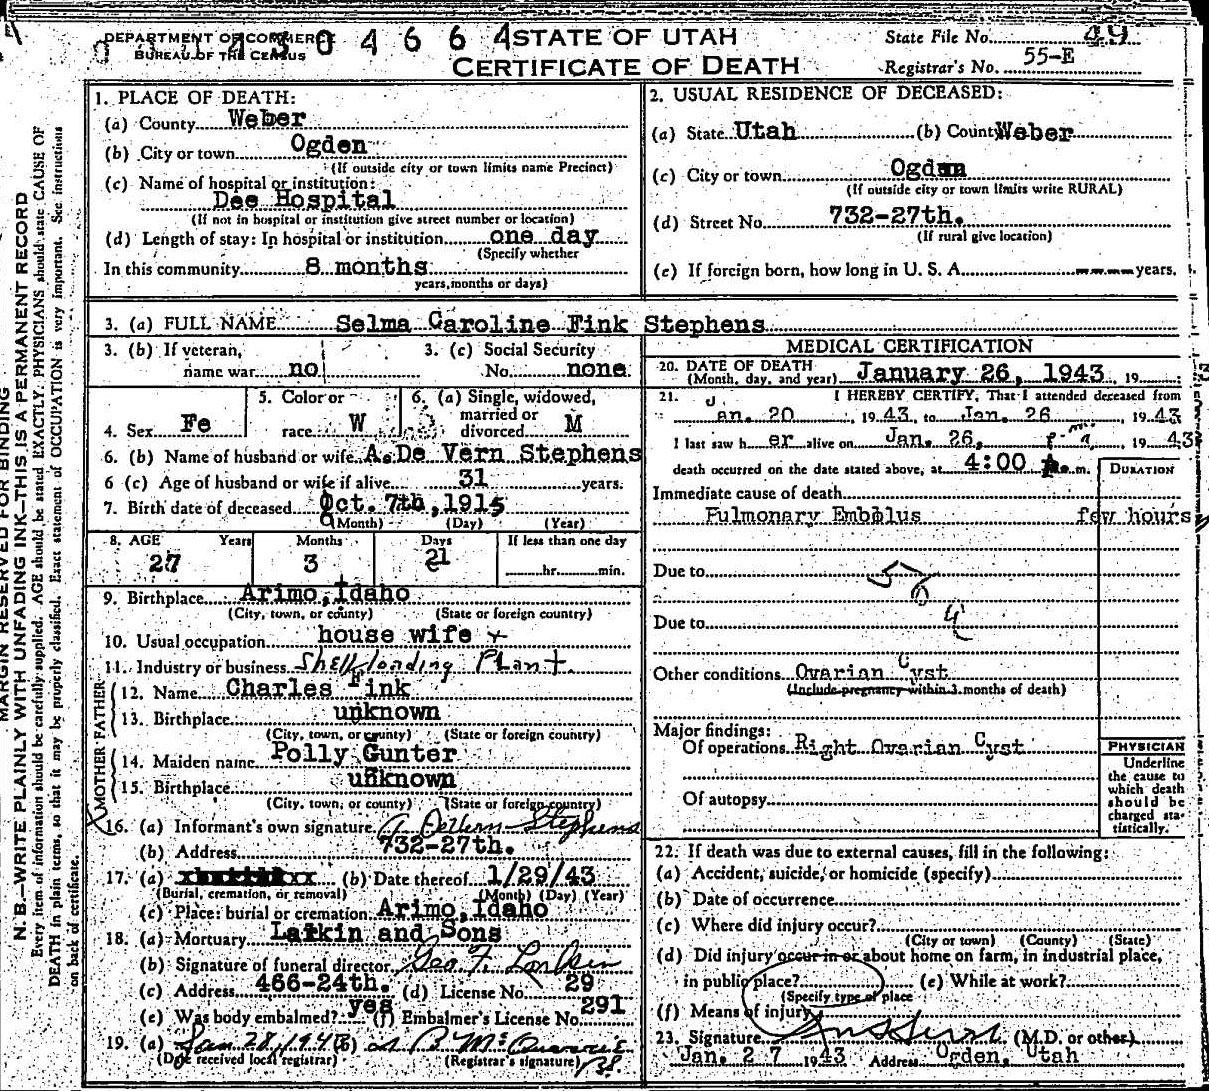 DEPARTMENT OF COMMERCE
BUREAU OF THE CENSUS
4 3 0 4 6 6 4
STATE OF UTAH
CERTIFICATE OF DEATH
State File No. 49
Registrar's No. 55-E
MARGIN RESERVED FOR BINDING
N. B.—WRITE PLAINLY WITH UNFADING INK—THIS IS A PERMANENT RECORD
Every item of information should be carefully supplied. AGE should be stated EXACTLY. PHYSICIANS should state CAUSE OF
DEATH in plain terms, so that it may be properly classified. Exact statement of OCCUPATION is very important. See instructions
on back of certificate.
1. PLACE OF DEATH:
(a) County Weber
(b) City or town Ogden
(If outside city or town limits name Precinct)
(c) Name of hospital or institution:
Dee Hospital
(If not in hospital or institution give street number or location)
(d) Length of stay: In hospital or institution one day
(Specify whether
In this community 8 months
years, months or days)
2. USUAL RESIDENCE OF DECEASED:
(a) State Utah (b) County Weber
(c) City or town Ogden
(If outside city or town limits write RURAL)
(d) Street No. 732-27th.
(If rural give location)
(e) If foreign born, how long in U. S. A. ---- years.
3. (a) FULL NAME Selma Caroline Fink Stephens
3. (b) If veteran,
name war no
3. (c) Social Security
No. none
4. Sex Fe
5. Color or
race W
6. (a) Single, widowed,
married or
divorced M
6. (b) Name of husband or wife A. De Vern Stephens
6 (c) Age of husband or wife if alive 31 years.
7. Birth date of deceased Oct. 7th, 1915
(Month) (Day) (Year)
8. AGE Years Months Days If less than one day
27 3 21 hr. min.
9. Birthplace Arimo, Idaho
(City, town, or county) (State or foreign country)
10. Usual occupation house wife
11. Industry or business Shell loading Plant
FATHER
12. Name Charles Fink
13. Birthplace unknown
(City, town, or county) (State or foreign country)
MOTHER
14. Maiden name Polly Gunter
15. Birthplace unknown
(City, town, or county) (State or foreign country)
16. (a) Informant's own signature A DeVern Stephens
(b) Address 732-27th.
17. (a) (b) Date thereof 1/29/43
(Burial, cremation, or removal) (Month) (Day) (Year)
(c) Place: burial or cremation Arimo, Idaho
18. (a) Mortuary Larkin and Sons
(b) Signature of funeral director Geo. F. Larkin
(c) Address 466-24th. (d) License No. 29
(e) Was body embalmed? yes (f) Embalmer's License No. 291
19. (a) Jan 28, 1943 (b)
(Date received local registrar) (Registrar's signature)
MEDICAL CERTIFICATION
20. DATE OF DEATH
(Month, day, and year) January 26, 1943, 19
21. I HEREBY CERTIFY, That I attended deceased from
Jan. 20, 1943, to Jan. 26, 1943
I last saw her alive on Jan. 26, 1943
death occurred on the date stated above, at 4:00 m.
DURATION
Immediate cause of death
Pulmonary Embolus few hours
Due to
Due to
Other conditions Ovarian Cyst
(Include pregnancy within 3 months of death)
Major findings:
Of operations Right Ovarian Cyst
Of autopsy
PHYSICIAN
Underline
the cause to
which death
should be
charged sta-
tistically.
22. If death was due to external causes, fill in the following:
(a) Accident, suicide, or homicide (specify)
(b) Date of occurrence
(c) Where did injury occur?
(City or town) (County) (State)
(d) Did injury occur in or about home on farm, in industrial place,
in public place? (e) While at work?
(Specify type of place
(f) Means of injury
23. Signature (M.D. or other)
Jan. 27 1943 Address Ogden, Utah